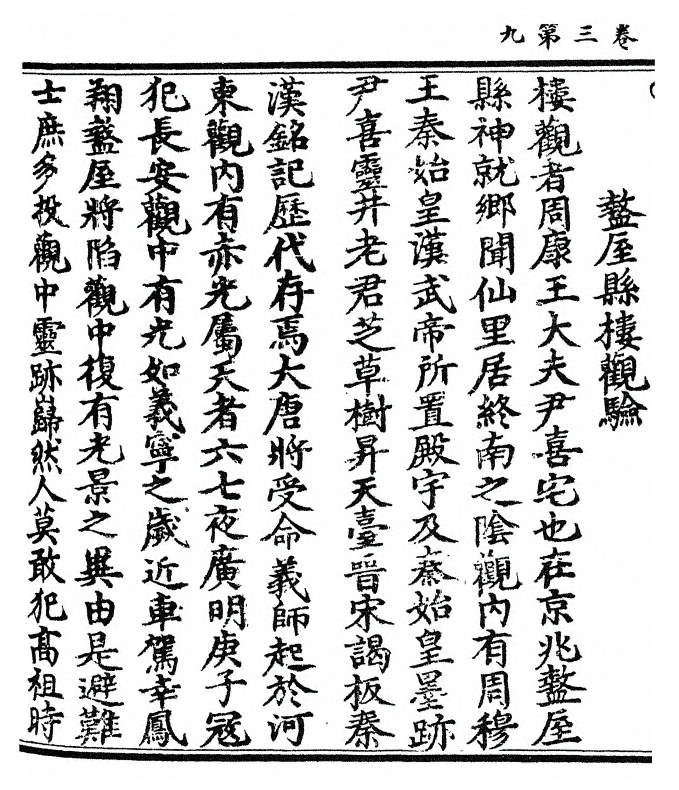 卷三第九
盩厔縣樓觀驗
樓觀者周康王大夫尹喜宅也在京兆盩厔
縣神就鄉聞仙里居終南之陰觀內有周穆
王秦始皇漢武帝所置殿宇及秦始皇墨跡
尹喜靈井老君芝草樹昇天臺晉宋謁板秦
漢銘記歷代存焉大唐將受命義師起於河
東觀內有赤光屬天者六七夜廣明庚子寇
犯長安觀中有光如義寧之歲近車駕幸鳳
翔盩厔將陷觀中復有光景之異由是避難
士庶多投觀中靈跡巋然人莫敢犯高祖時